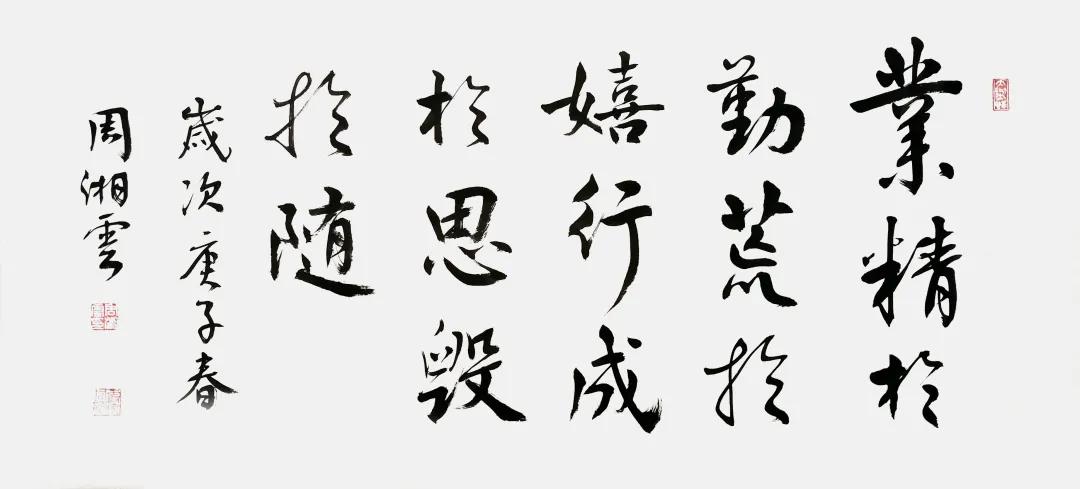 業精於
勤荒於
嬉行成
於思毀
於随
歲次庚子春
周湘雲